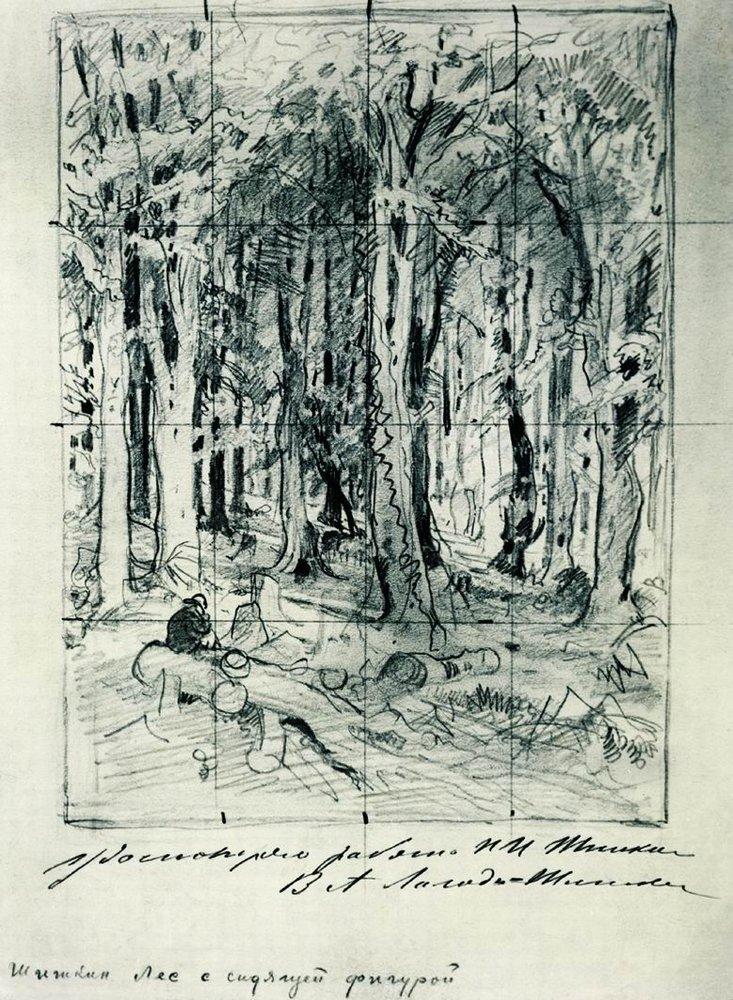 удостоверяю работа И И Шишкин
В А Лагода-Шишкина
Шишкин Лес с сидящей фигурой